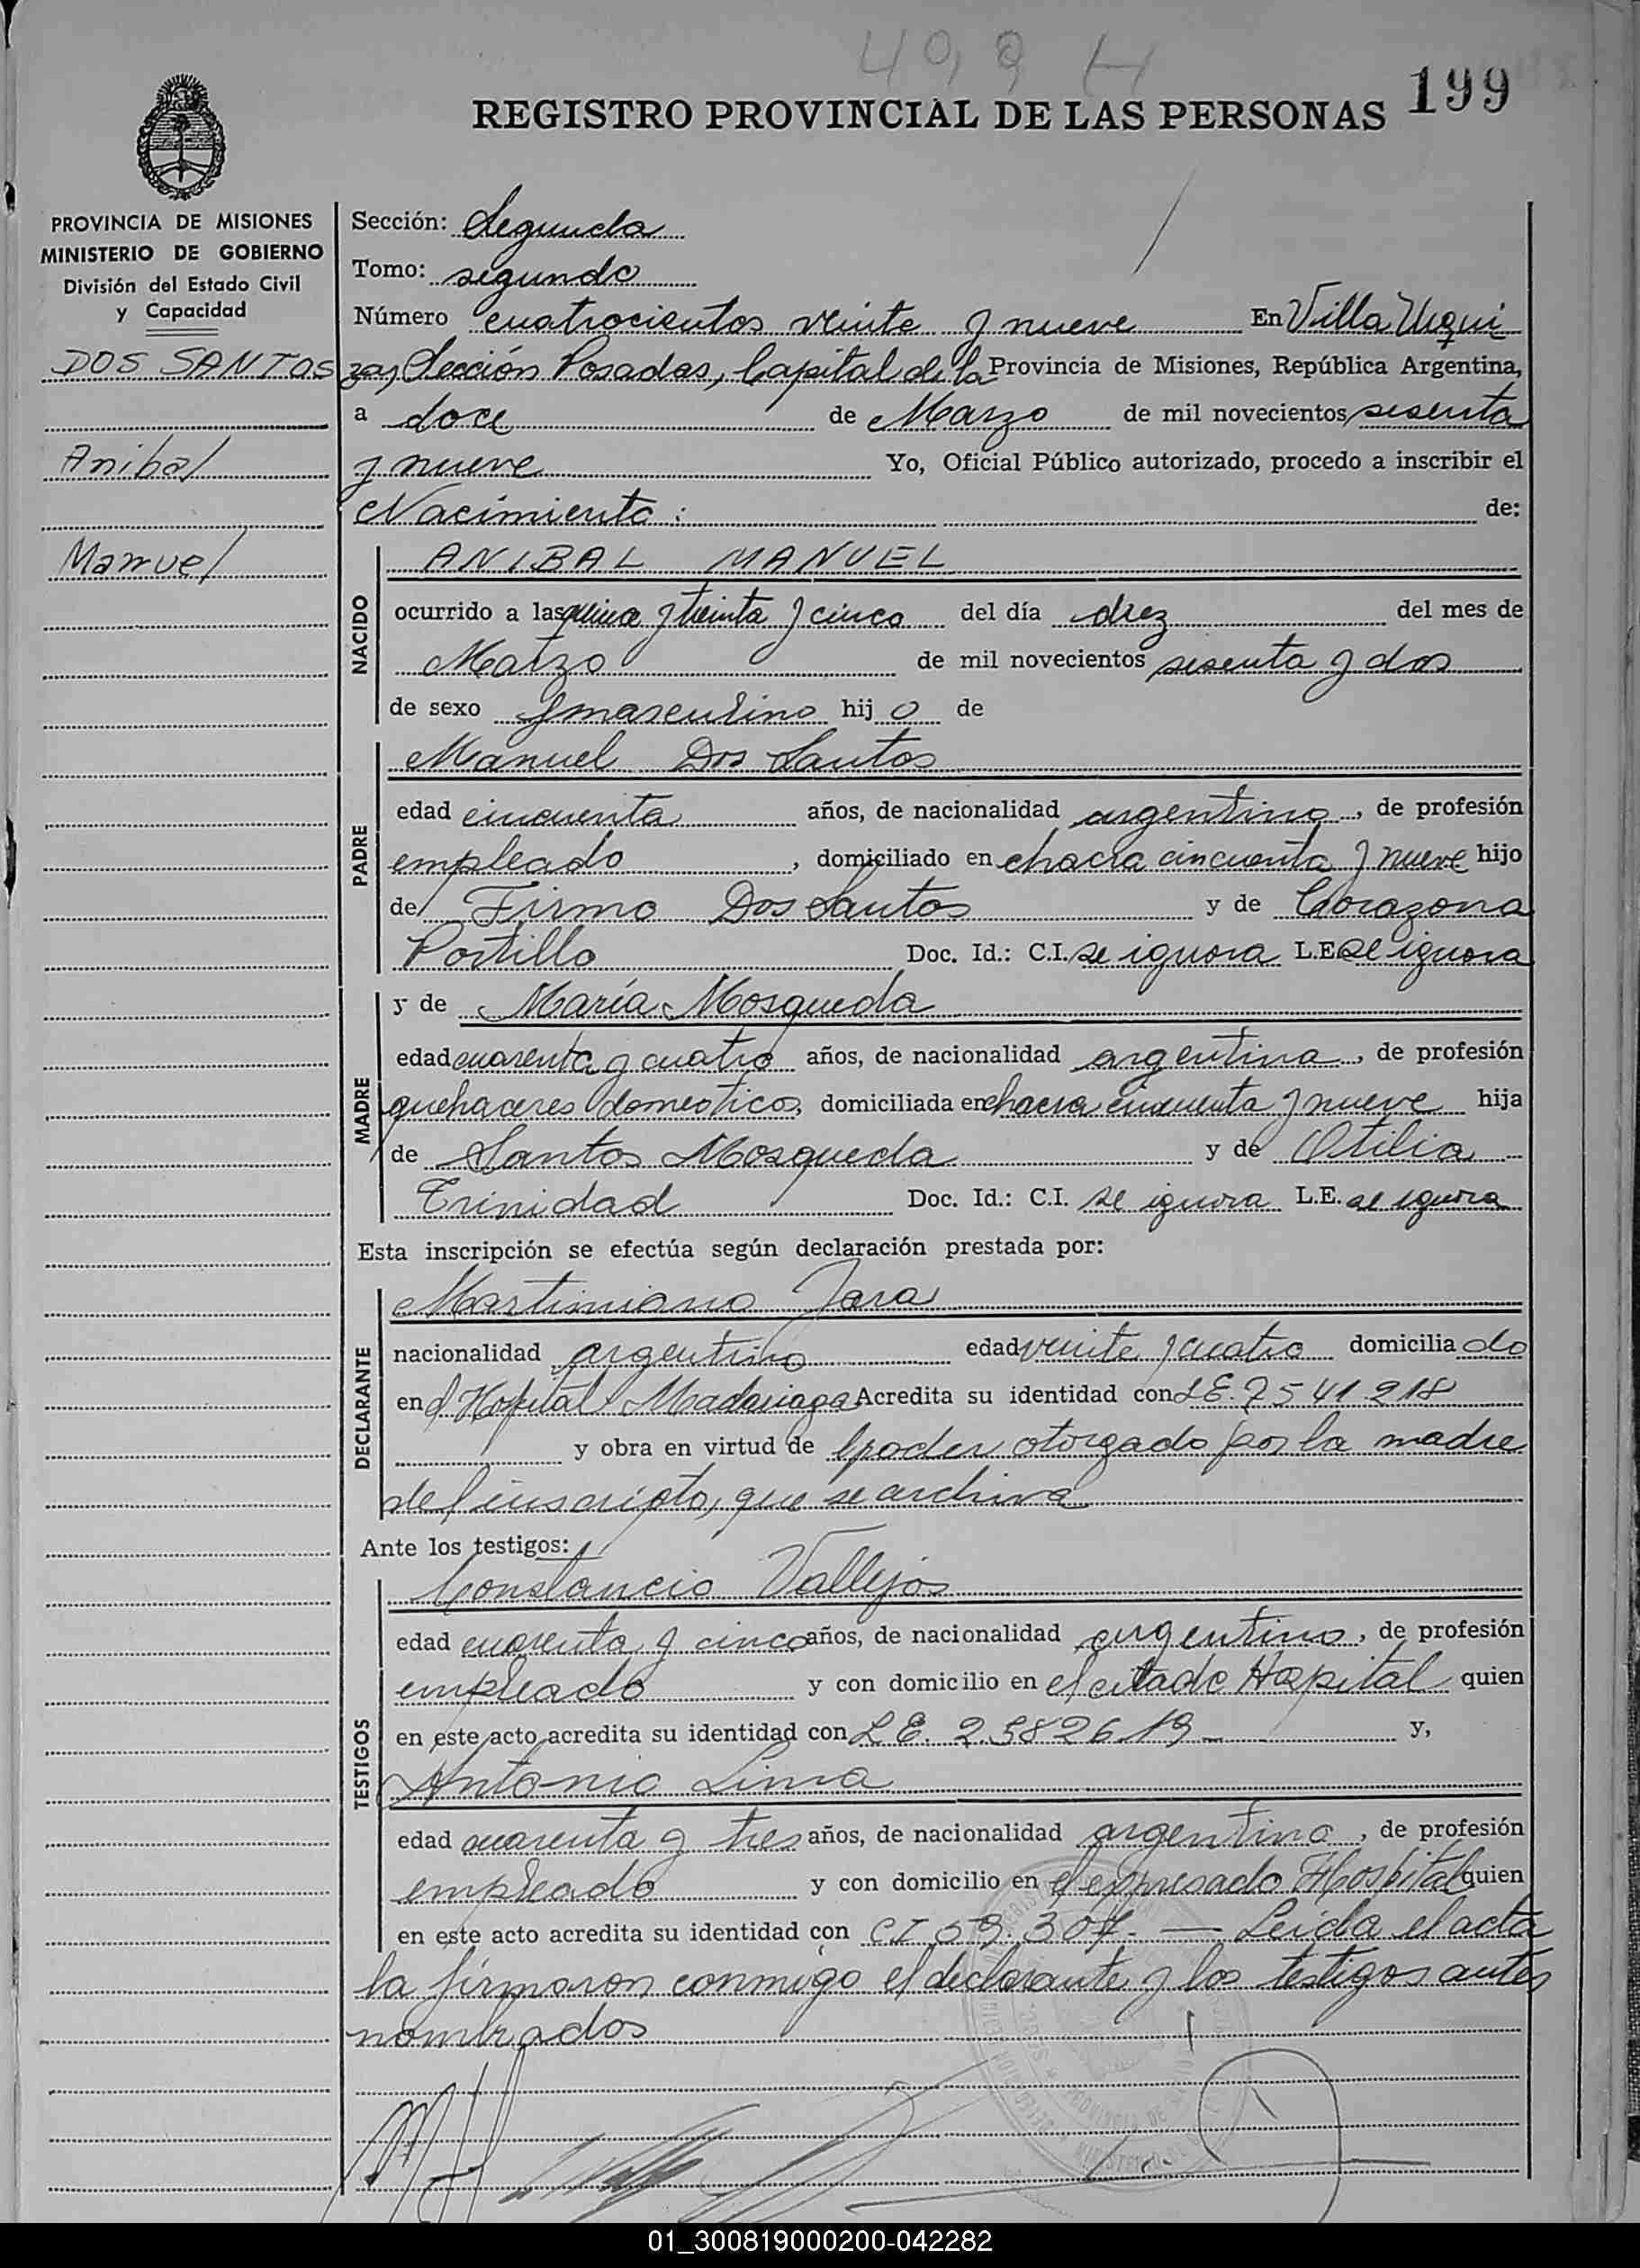 499 H
REGISTRO PROVINCIAL DE LAS PERSONAS 199
PROVINCIA DE MISIONES
MINISTERIO DE GOBIERNO
División del Estado Civil
y Capacidad
DOS SANTOS
Anibal
Manuel
Sección: Segunda
Tomo: segundo
Número cuatrocientos veinte y nueve En Villa Urqui
za, Sección Posadas, Capital de la Provincia de Misiones, República Argentina,
a doce de Marzo de mil novecientos sesenta
y nueve Yo, Oficial Público autorizado, procedo a inscribir el
Nacimiento: de:
NACIDO
ANIBAL MANUEL
ocurrido a las quince y treinta y cinco del día diez del mes de
Marzo de mil novecientos sesenta y dos
de sexo masculino hijo de
PADRE
Manuel Dos Santos
edad cincuenta años, de nacionalidad argentino, de profesión
empleado, domiciliado en chacra cincuenta y nueve hijo
de Firmo Dos Santos y de Corazona
Portillo Doc. Id.: C.I. se ignora L.E. se ignora
MADRE
y de María Mosqueda
edad cuarenta y cuatro años, de nacionalidad argentina, de profesión
quehaceres domesticos, domiciliada en chacra cincuenta y nueve hija
de Santos Mosqueda y de Otilia
Trinidad Doc. Id.: C.I. se ignora L.E. se ignora
Esta inscripción se efectúa según declaración prestada por:
DECLARANTE
Martimiano Jara
nacionalidad argentino edad veinte y cuatro domiciliado
en el Hospital Madariaga Acredita su identidad con LE. 7541218
y obra en virtud de poder otorgado por la madre
del inscripto, que se archiva
Ante los testigos:
TESTIGOS
Constancio Vallejos
edad cuarenta y cinco años, de nacionalidad argentino, de profesión
empleado y con domicilio en el citado Hospital quien
en este acto acredita su identidad con LE. 2.582619 y,
Antonio Lima
edad cuarenta y tres años, de nacionalidad argentino, de profesión
empleado y con domicilio en el expresado Hospital quien
en este acto acredita su identidad con CI 59.307. — Leida el acta
la firmaron conmigo el declarante y los testigos antes
nombrados
01_300819000200-042282